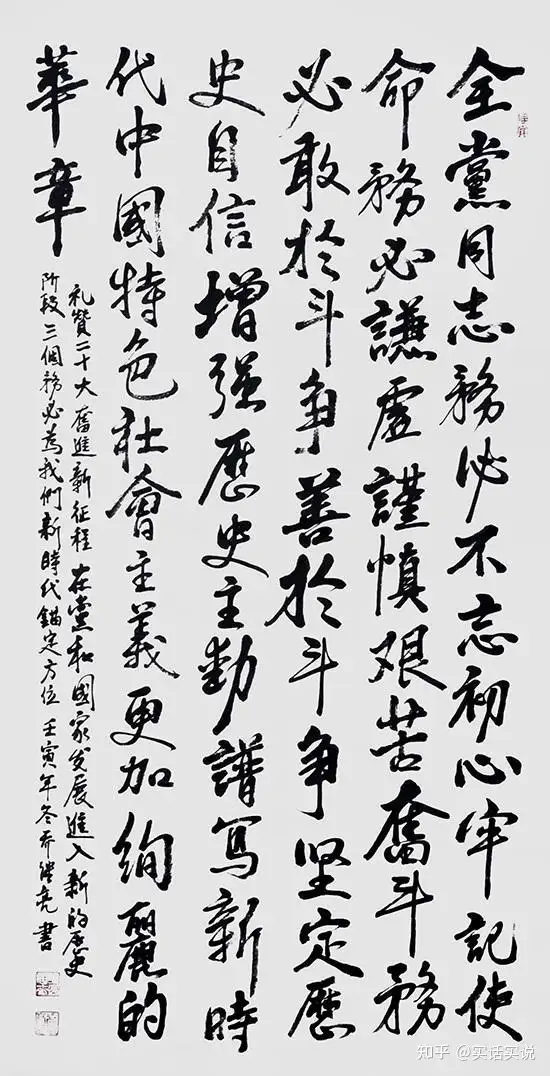 全黨同志務必不忘初心牢記使
命務必謙虛謹慎艰苦奮斗務
必敢於斗爭善於斗爭坚定歷
史自信增强歷史主動譜写新時
代中國特色社會主義更加絢麗的
華章
礼赞二十大奮進新征程在黨和國家发展進入新的历史
阶段三個務必為我們新時代錨定方位壬寅年冬乔亮書
知乎 @实话实说